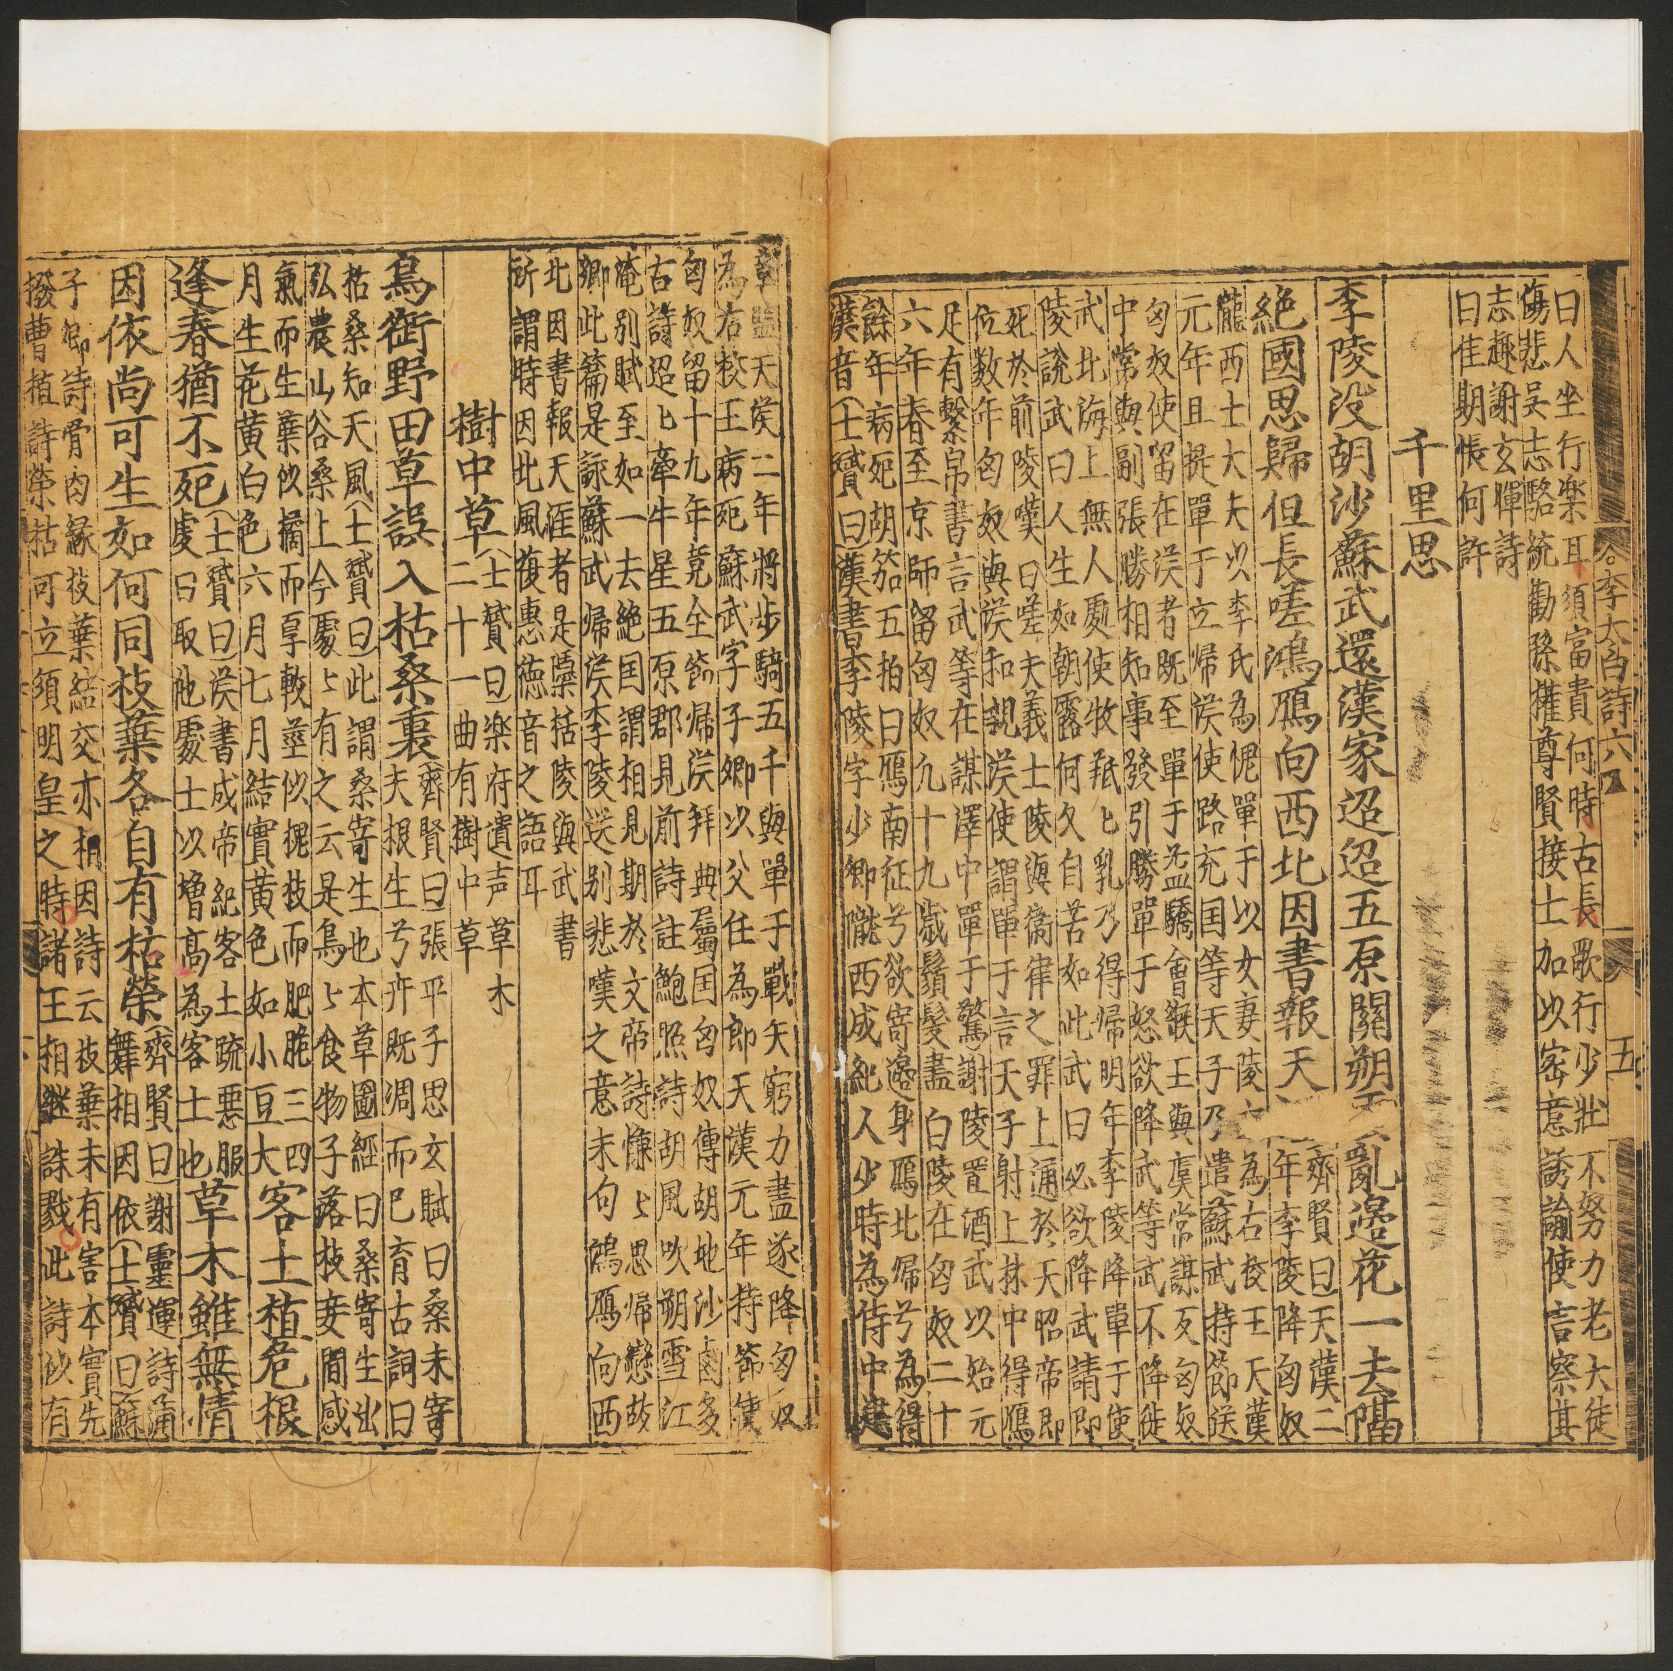 李太白詩六 五
曰人坐行楽耳須富貴何時古長歌行少壯不努力老大徒
傷悲吳志駱統勸孫權尊賢接士加以密意誘諭使言察其
志趣謝玄暉詩
曰佳期悵何許
千里思
李陵没胡沙蘇武還漢家迢迢五原關朔亂邊花一去隔
絶國思歸但長嗟鴻鴈向西北因書報天
齊賢曰天漢二
年李陵降匈奴
隴西士大夫以李氏為愧單于以女妻陵為右校王天漢
元年且提單于立歸漢使路充国等天子乃遣蘇武持節送
匈奴使留在漢者既至單于益驕會緱王與虞常謀反匈奴
中常與副張勝相知事發引勝單于怒欲降武等武不降徙
武北海上無人處使牧羝匕乳乃得歸明年李陵降單于使
陵說武曰人生如朝露何久自苦如此武曰必欲降武請即
死於前陵嘆曰嗟夫義士陵與衛律之罪上通於天昭帝即
位数年匈奴與漢和親漢使謂單于言天子射上林中得鴈
足有繫帛書言武等在謀澤中單于驚謝陵置酒武以始元
六年春至京師留匈奴九十九歲鬚髮盡白陵在匈奴二十
餘年病死胡笳五拍曰鴈南征兮欲寄邊身鴈北歸兮為得
漢音(士贇曰漢書李陵字少卿隴西成紀人少時為侍中建
章監天漢二年將步騎五千與單于戰矢窮力盡遂降匈奴
為右校王病死蘇武字子卿以父任為郎天漢元年持節使
匈奴留十九年竟全節歸漢拜典屬国匈奴傳胡地沙鹵多
古詩迢匕牽牛星五原郡見前詩註鮑照詩胡風吹朔雪江
淹别賦至如一去絶国謂相見期於文帝詩慊匕思帰戀故
卿此篇是詠蘇武帰漢李陵送别悲嘆之意末句鴻鴈向西
北因書報天涯者是檃括陵與武書
所謂時因北風復惠徳音之語耳
樹中草(士贇曰楽府遺声草木
二十一曲有樹中草
鳥銜野田草誤入枯桑裏(齊賢曰張平子思玄賦曰桑末寄
夫根生兮卉既凋而已育古詞曰
枯桑知天風(士贇曰此謂桑寄生也本草圖經曰桑寄生出
弘農山谷桑上今處匕有之云是鳥匕食物子落枝妾間感
氣而生葉似橘而厚軟莖似槐枝而肥脆三四
月生花黄白色六月七月結實黄色如小豆大
客土植危根
逢春猶不死(士贇曰漢書成帝紀客土疏惡服
虔曰取他處士以增高為客土也
草木雖無情
因依尚可生如何同枝葉各自有枯榮(齊賢曰謝靈運詩涌
舞相因依(士贇曰蘇
子卿詩骨肉縁枝葉結交亦相因詩云枝葉未有害本實先
撥曹植詩榮枯可立須明皇之時諸王相継誅戮此詩似有